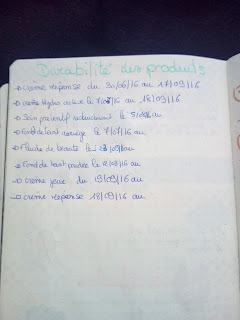 Durabilité des produits
→ crème réponse du 30/06/16 au 17/09/16
→ crème Hydra active le 7/07/16 au 18/09/16
→ Soin préventif le au
→ Fond de teint le 7/07/16 au
→ Fluide de beauté le au
→ Fond de teint poudre le /08/16 au
→ crème jour du 19/09/16 au
→ crème réponse 18/09/16 au